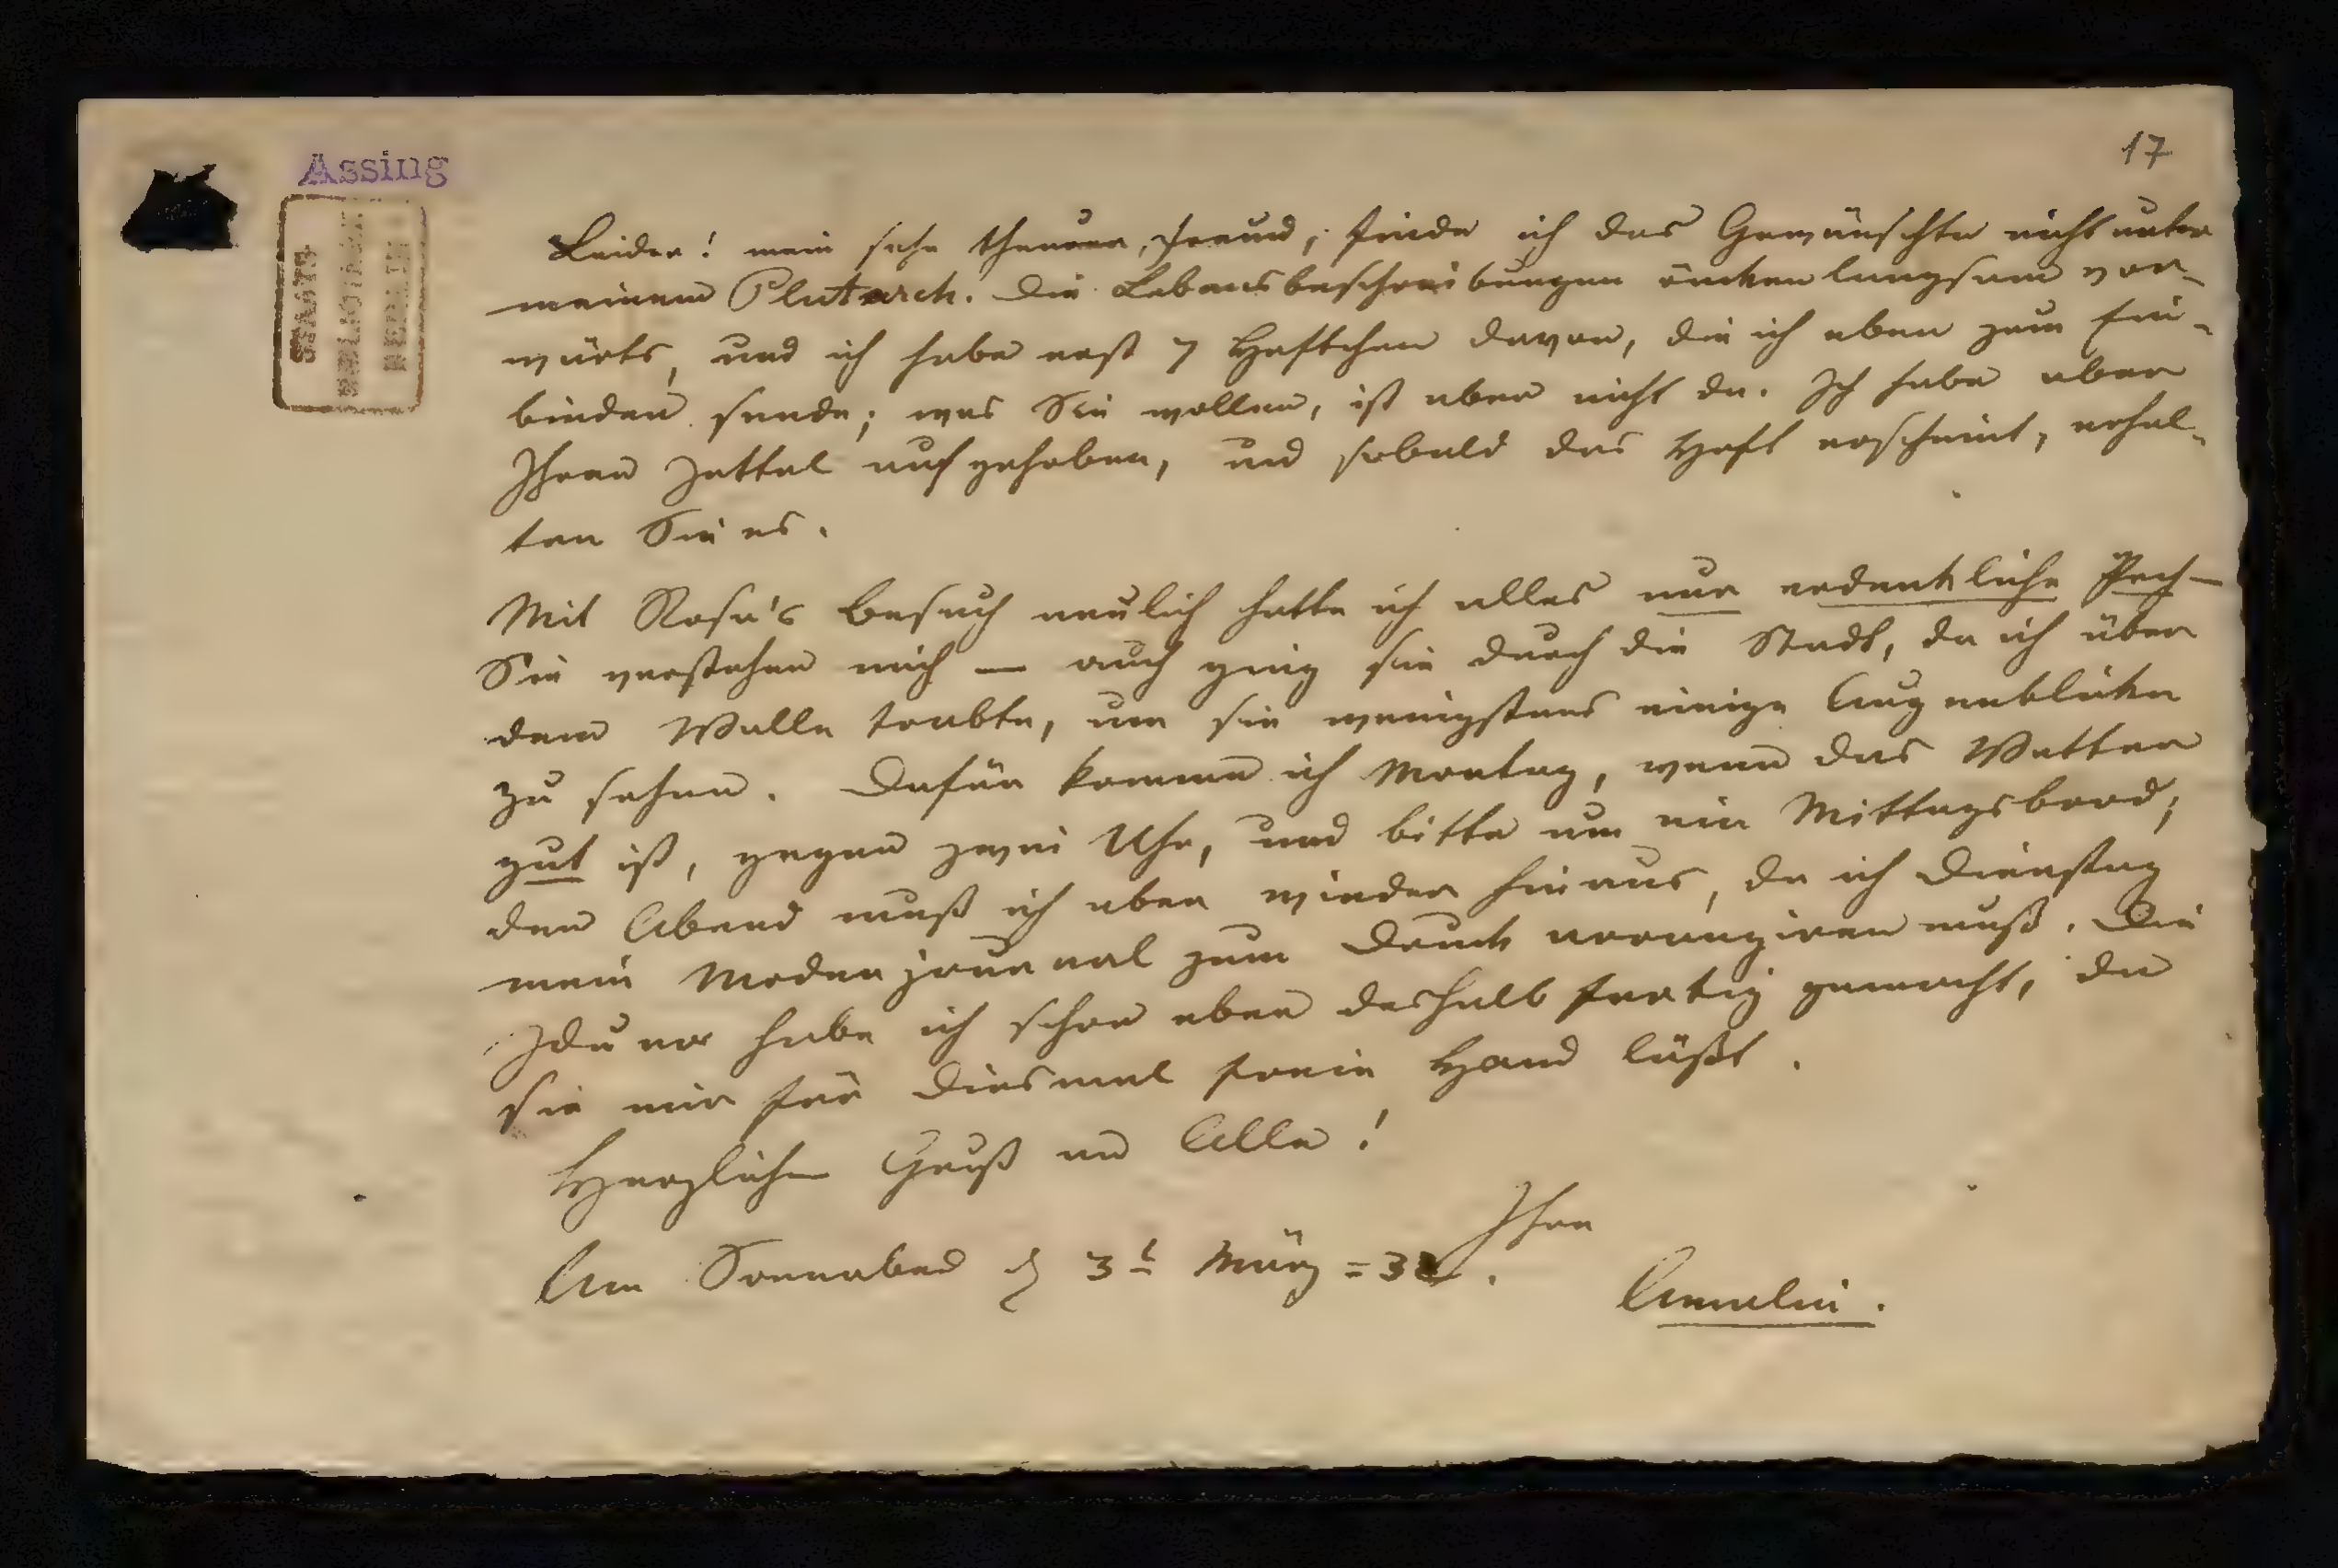 17
Assing
STAATS
BIBLIOTHEK
BERLIN
Leider! mein sehr theurer Freund, finde ich das Gewünschte nicht unter
meinem Plutarch. Die Lebensbeschreibungen rücken langsam vor-
wärts, und ich habe erst 7 Heftchen davon, die ich eben zum Ein-
binden sende; was Sie wollen, ist aber nicht da. Ich habe aber
Ihren Zettel aufgehoben, und sobald das Heft erscheint, erhal-
ten Sie es.
Mit Rosa's Besuch neulich hatte ich alles nur erdenkliche Pech –
Sie verstehen mich — auch ging sie durch die Stadt, da ich über
dem Walle trabte, um sie wenigstens einige Augenblicke
zu sehen. Dafür komme ich Montag, wenn das Wetter
gut ist, gegen zwei Uhr, und bitte um ein Mittagsbrod;
den Abend muß ich aber wieder hinaus, da ich Dienstag
mein Modenjournal zum Druck arrangiren muß. Die
Iduna habe ich schon eben deshalb fertig gemacht, da
sie mir für diesmal freie Hand läßt.
Herzlichen Gruß an Alle!
Ihre
Am Sonnabend d 3t März = 32.
Amalie.